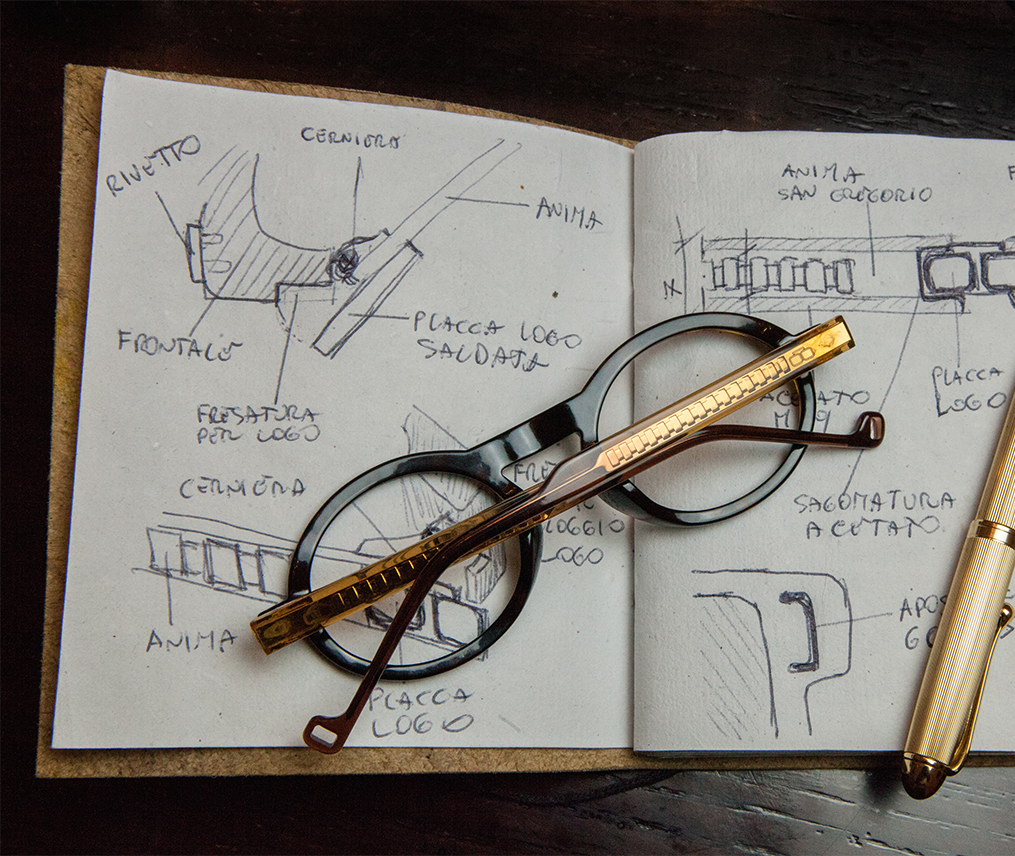 CERNIERA
RIVETTO
ANIMA
FRONTALE
PLACCA LOGO
SALDATA
FRESATURA
PER LOGO
CERNIERA
LOGO
ANIMA
PLACCA
LOGO
ANIMA
SAN GREGORIO
PLACCA
LOGO
SAGOMATURA
ACETATO